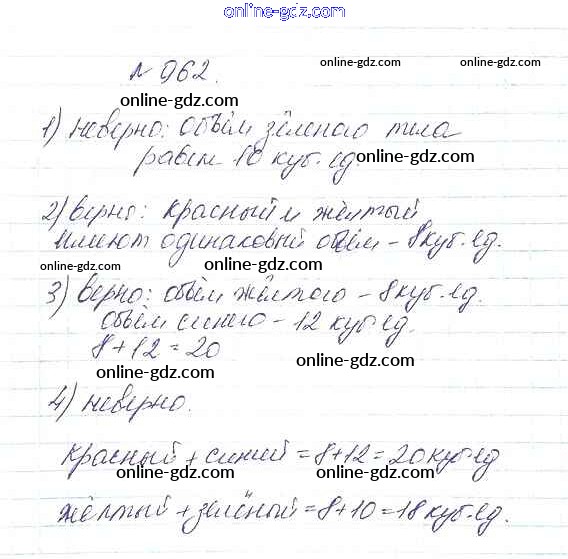 www.online-gdz.com
№ 962.
online-gdz.com
online-gdz.com
1) неверно: объём зёленого тела
равен 10 куб. ед.
online-gdz.com
2) верно: красный и жёлтый
online-gdz.com
имеют одинаковый объём - 8 куб. ед.
online-gdz.com
online-gdz.com
3) верно: объём жёлтого - 8 куб. ед.
объём синего - 12 куб. ед.
online-gdz.com
8 + 12 = 20
online-gdz.com
4) неверно.
online-gdz.com
online-gdz.com
красный + синий = 8 + 12 = 20 куб. ед
online-gdz.com
жёлтый + зелёный = 8 + 10 = 18 куб. ед.
online-gdz.com
online-gdz.com